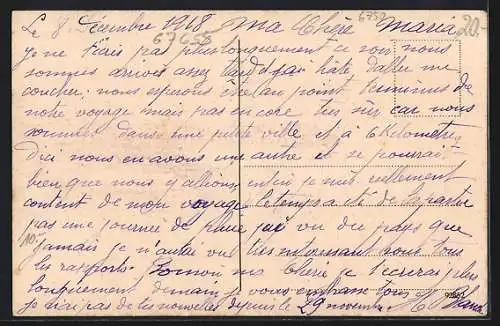 Le 8 Décembre 1918 Ma Chère Maria
67658
6752
20.-
je ne t'ecris pas plus longuement ce soir nous
sommes arrivés assez tard et j'ai hâte d'aller me
coucher; nous esperons être au point terminus de
notre voyage mais pas encore très sûr car nous
sommes dans une petite ville et à 6 kilomètres
d'ici nous en avons une autre et il se pourrait
bien que nous y allions, enfin je suis réellement
content de mon voyage le temps a été de la partie
pas une journée de pluie j'ai vu du pays que
jamais je n'aurai vu très interressant sous tous
les rapports. Bonsoir ma Chère je t'ecrirai plus
longuement demain je vous embrasse tous
je n'ai pas de tes nouvelles depuis le 29 novembre
10.-